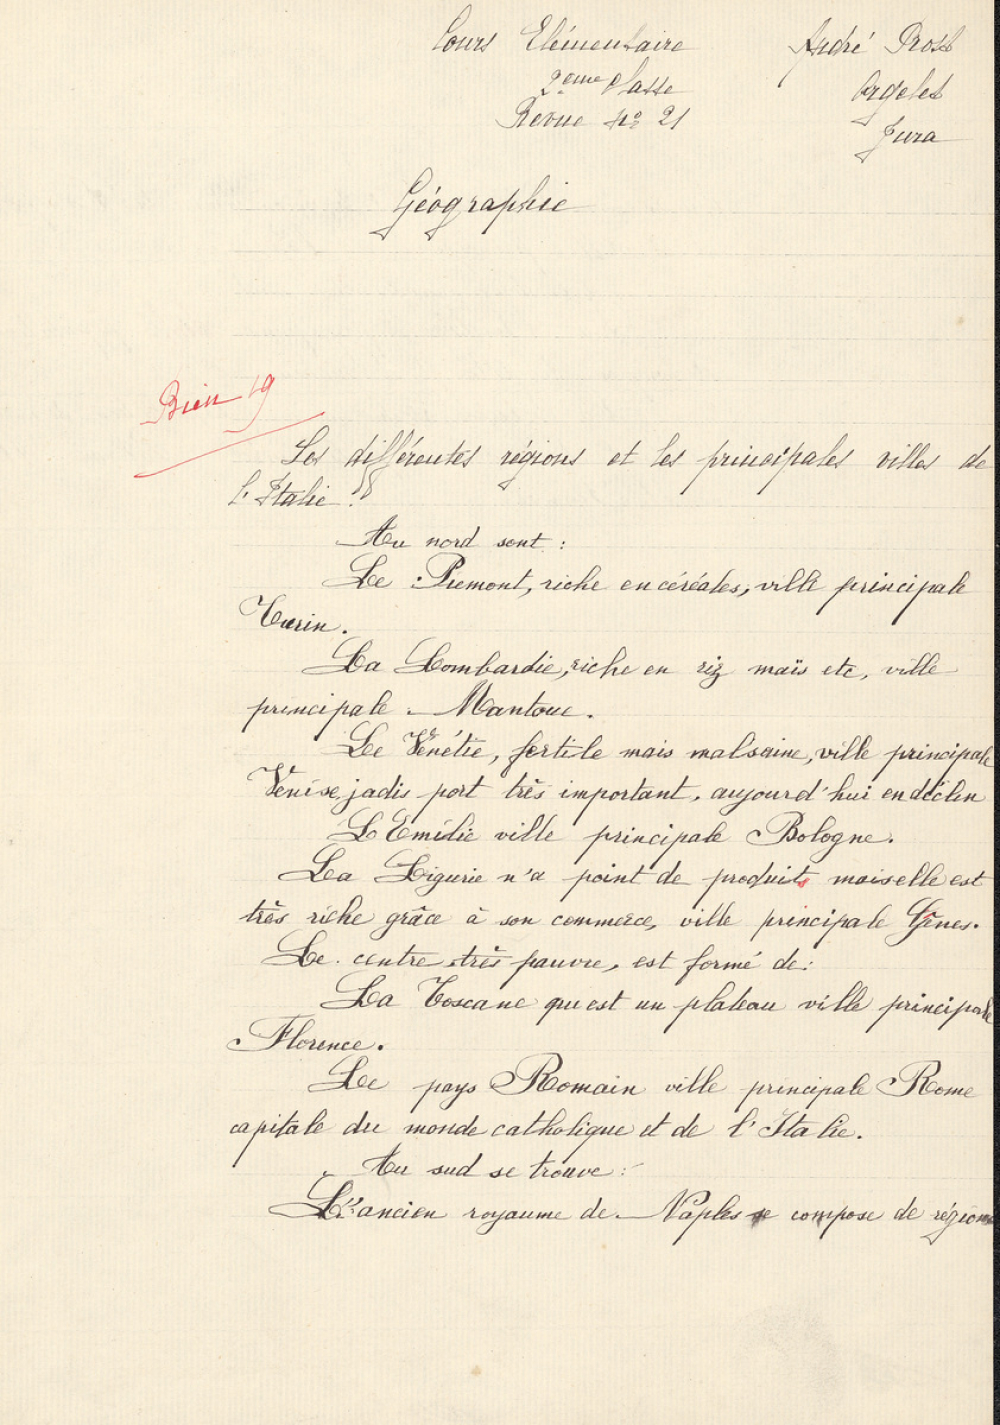 Cours Elémentaire
2ème classe
Revue No 21
André Prost
Orgelet
Jura
Géographie
Bien 19
Les différentes régions et les principales villes de
l'Italie.
Au nord sont :
Le Piémont, riche en céréales, ville principale
Turin.
La Lombardie, riche en riz maïs etc, ville
principale Mantoue.
La Vénétie, fertile mais malsaine, ville principale
Venise, jadis port très important, aujourd'hui en déclin
L'Emilie ville principale Bologne.
La Ligurie n'a point de produits mais elle est
très riche grâce à son commerce, ville principale Gênes.
Le centre très pauvre, est formé de :
La Toscane qui est un plateau ville principale
Florence.
Le pays Romain ville principale Rome
capitale du monde catholique et de l'Italie.
Au sud se trouve :
L'ancien royaume de Naples se compose de régions